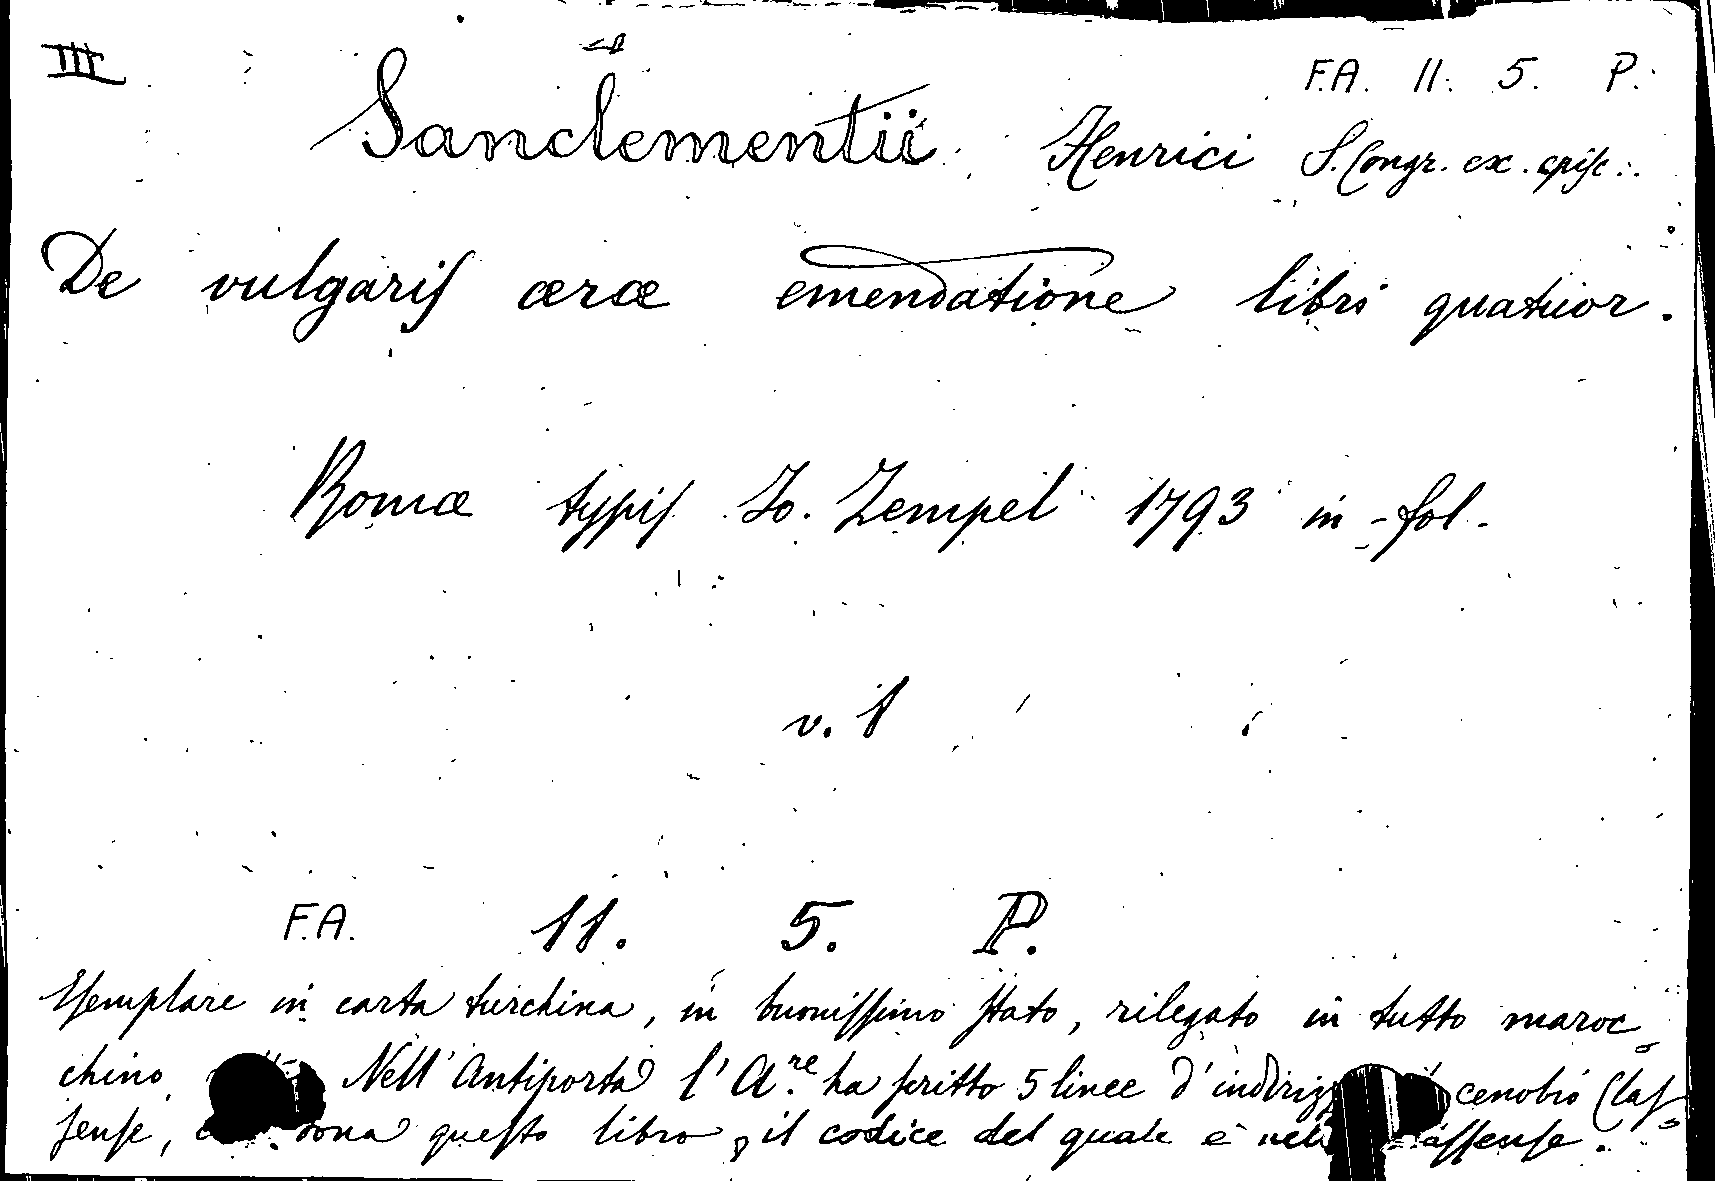 III
F.A. 11. 5. P.
Sanclementii Henrici S. Congr. ex. episc.
De vulgaris æræ emendatione libri quatuor.
Romæ typis Jo. Zempel 1793 in-fol.
v. 1
F.A. 11. 5. P.
Esemplare in carta turchina, in buonissimo stato, rilegato in tutto maroc=
chino. Nell'Antiporta l'A.re ha scritto 5 linee d'indirizz cenobio Clas=
sense, dona questo libro, il codice del quale è nell assense.